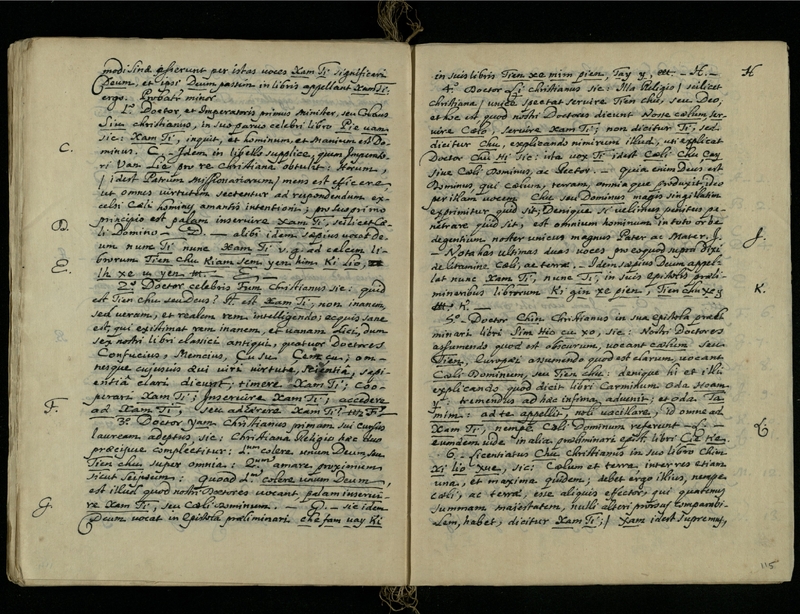 modi sinæ asserunt per istas voces Xam Ti significari
Deum, et ipsi Deum passim in libris appellant Xam Ti.
ergo. Probatr minor
1.º Doctor, et Imperatoris primus Minister, seu Colaus
Siu christianus, in suo parvo celebri libro Pie vam
sic: Xam Ti, inquit, et hominum, et Manium est Do-
C. minus. C. Idem in libello supplice, quem Imperato-
ri Van Lie pro re Christiana obtulit: Horum,
/ idest Patrum Missionariorum / mens est efficere
ut omnes virtutem sectentur ad respondendum ex-
celsi Cæli homines amantis intentioni; prius primo
principio est palam inservire Xam Ti, scilicet Cæ-
D. li Domino – D. – alibi idem sæpius vocat De-
um nunc Ti nunc Xam Ti v.g. ad calcem li-
E. brorum Tien Chu Kiam sem yen him Ki lio,
Ih xe u yen
2.º Doctor celebris Fum Christianus sic: quid
est Tien chu seu Deus? Et est Xam Ti; non inanem,
sed veram, et realem rem intelligendo: acquis sane
est, qui existimat rem inanem, et vanam dici, dum
seu nostri libri classici antiqui, quatuor Doctores
Confucius, Mencius, Çu su Çem çu; om-
nesque cujusvis ævi viri virtute, scientia, sapi-
entiâ clari dicunt; timere Xam Ti; Coo-
perari Xam Ti; Inservire Xam Ti; accedere
F. ad Xam Ti, seu adhærere Xam Ti? F.
3.º Doctor Yam Christianus primam sui cursus
lauream adeptus sic: Christiana Religio hæc duo
præcipue complectitur: 1.um colere unum Deum seu
Tien chu super omnia: 2.um amare proximum
sicut seipsum: quoad 1.um colere unum Deum,
est illud quod nostri Doctores vocant palam inservi-
G. re Xam Ti, seu Cæli Dominum. – G. – sic idem
Deum vocat in Epistola præliminari che fam vay Ki
in suis libris Tien xe mim pien, Tay y, etc. – H. – H.
4.º Doctor Li Christianus sic: Illa Religio / scilicet
christiana / unice spectat servire Tien chu, seu Deo,
et hoc est quod nostri Doctores dicunt Nosse cælum ser-
vire Cælo, servire Xam Ti; non dicitur Ti, sed
dicitur Chu, explicando nimirum illud, uti explicat
Doctor Chu Hi sic: ista vox Ti idest Cæli Chu Çay
sive Cæli Dominus, ac Rector. – quia enim Deus est
Dominus, qui cælum, terram, omniaque produxit, ideo
per illam vocem Chu seu Dominus magis singillatim
exprimitur quid sit; Denique si vellimus penitus pe-
netrare quid sit, est omnium hominum in toto orbe
degentium noster unicus magnus Pater ac Mater. J. J.
– Nota has ultimas duas voces pro eo quod supra dixi
de litamine Cæli, ac terræ. – Idem sæpius Deum appel-
lat nunc Xam Ti, nunc Ti, in suis Epistolis præli-
minaribus librorum Ki gin xe pien, Tien chu xe y K.
etc. K.
5.º Doctor Chin Christianus in sua epistola præli-
minari libri Sim Hio çu xo, sic: Nostri Doctores
assumendo quod est obscurum, vocant cælum seu
Tien, Europæi assumendo quod est clarum, vocant
Cæli Dominum, seu Tien chu: denique hi et illi
explicando quod dicit libri Carminum Oda Hoam
y: tremendus ad hæc infima advenit; et oda Ta
mim: ad te appellit, noli vacillare, id omne ad
Xam Ti, nempe Cæli Dominum referunt – L. – L.
eumdem vide in alia præliminari epist. libri Çie Ken.
6. Licentiatus Chu Christianus in suo libro Chin
Ki lio xue, sic: Cælum et terra, inter res etiam
una, et maxima quidem; debet ergo illius, nempe
cæli, ac terræ, esse aliquis effector, qui quatenus
summam majestatem, nulli alteri prorsus comparabi-
lem, habet, dicitur Xam Ti; / Xam idest supremus,
115